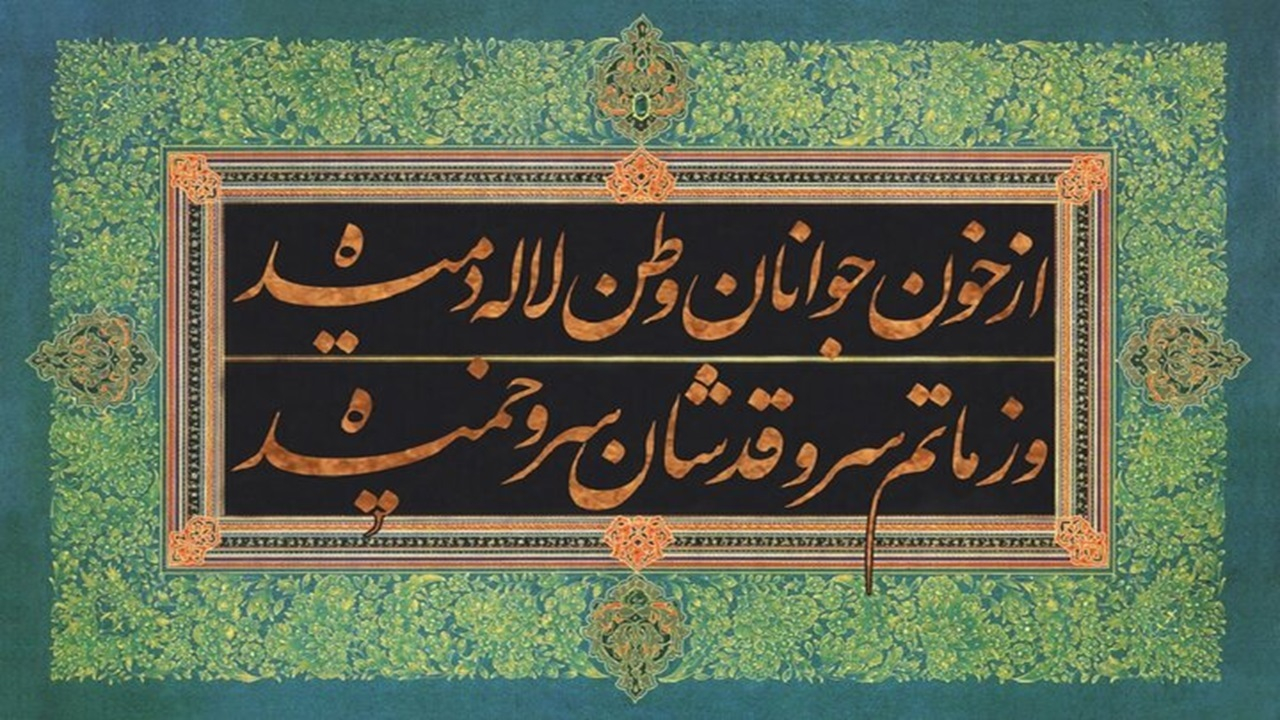 از خون جوانان وطن لاله دمیده
وز ماتم سرو قدشان سرو خمیده